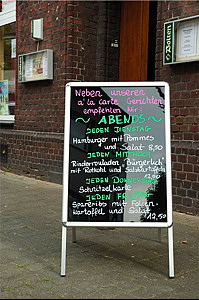 Neben unseren
a'la Carte Gerichten
empfehlen wir
~ ABENDS ~
JEDEN DIENSTAG
Hamburger mit Pommes
und Salat 8,50
JEDEN MITTWOCH
Rinderrouladen "Bürgerlich"
mit Rotkohl und Salzkartoffeln
12,50
JEDEN DONNERSTAG
Schnitzelkarte
JEDEN FREITAG
Spareribs mit Folien-
kartoffel und Salat
12,50